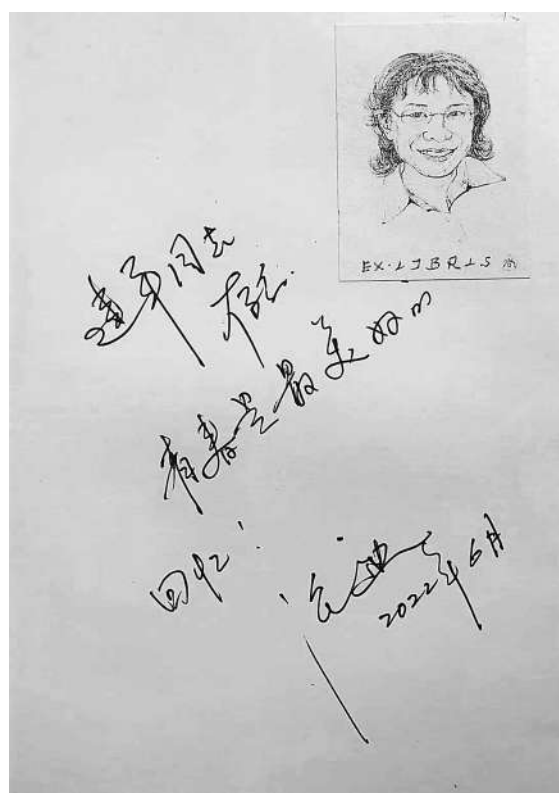 EX·LIBRIS
建平同志
存念.
青春是最美好的
回忆!
2022年6月